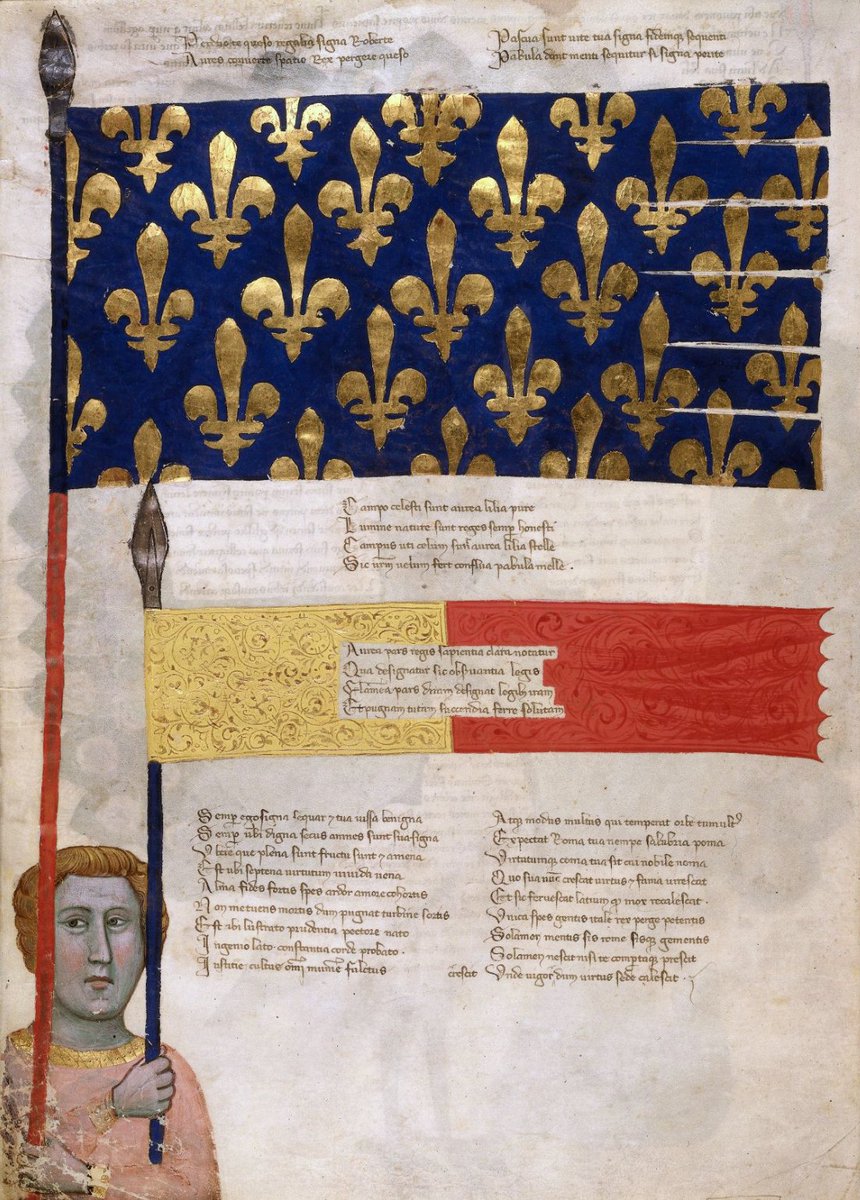 Perdiscite queso regalia signa Roberte
Aures converte spatio Rex pergere queso
Pascua sunt vite tua signa fidemque sequenti
Pabula dant menti sequitur si signa perite
Campo celesti sunt aurea lilia pure
Lumine nature sunt reges semp honesti
Campus uti celum sunt aurea lilia stelle
Sic urm uelum fert conflua pabula melle .
Aurea pars regis sapientia clara notatur
Qua designatur sic obseruantia legis
Flamea pars diram designat legibus iram
Et pugnam tutam succendia ferre solutam
Semp ego signa sequar & tua iussa benigna
Semp ubi digna secus amnes sunt sua signa
Vbere que plena sunt fructu sunt & amena
Est ubi septena virtutum uiuida uena
Alma fides fortis spes ardor amore cohortis
Non metuens mortis dum pugnat turbine sortis
Est ibi lustrato prudentia pectore nato
Ingenio lato constantia corde probato .
Iustitie cultus omi munere fulctus
crescit
Atque modus multus qui temperat orbe tumultus
Expectat Roma tua nempe salubria poma
Virtutumque coma tua sit cui nobile noma
Quo sua nunc crescat virtus & fama virescat
Et sic feruescat latium quod mox recalescat .
Vnica spes gentis itale rex perge potentis
Solamen mentis sis rome sisque gementis
Solamen nescit nisi te comptaque prescit
Vnde vigor dum virtus sede calescit .